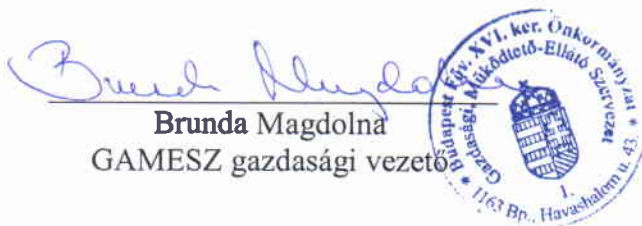 Brunda Magdolna
Brunda Magdolna
GAMESZ gazdasági vezető
* Budapest Főv. XVI. ker. Önkormányzat *
Gazdasági, Működtető-Ellátó Szervezet
1.
1163 Bp., Havashalom u. 43.